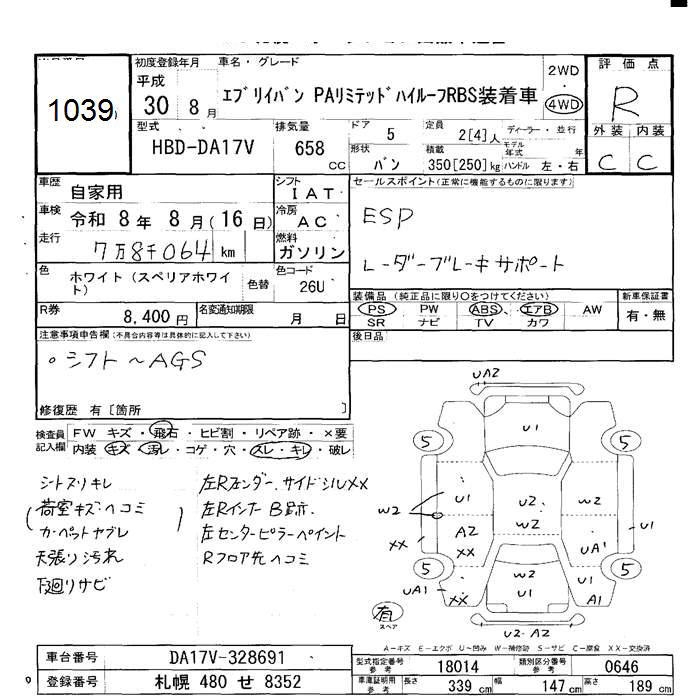 1039
初度登録年月
平成
30 8月
車名・グレード
エブリイバン PAリミテッドハイルーフRBS装着車
2WD
・
4WD
評価点
R
外装 内装
C C
型式
HBD-DA17V
排気量
658
CC
ドア
5
定員
2[4]人
ディーラー・並行
形状
バン
積載
350[250]kg
モデル年式 年
ハンドル 左・右
車歴
自家用
シフト
IAT
車検
令和 8年 8月(16日)
冷房
AC
走行
7万8千064 km
燃料
ガソリン
セールスポイント(正常に機能するものに限ります)
ESP
レーダーブレーキサポート
色
ホワイト(スペリアホワイト)
色替
色コード
26U
R券
8,400円
名変通知期限
月 日
装備品(純正品に限り○をつけてください)
PS ・ PW ・ ABS ・ エアB ・ AW
SR ナビ TV カワ
新車保証書
有・無
注意事項申告欄(不具合内容等は具体的に記入して下さい)
。シフト〜AGS
修復歴 有[箇所 ]
後日品
検査員記入欄
FW キズ・飛石・ヒビ割・リペア跡・×要
内装 キズ・汚レ・コゲ・穴・スレ・キレ・破レ
シトスリキレ
荷室キズヘコミ
カーペットヤブレ
天張り汚れ
下廻りサビ
左Rフェンダー、サイドシルXX
左Rインナー B跡
左センターピラーペイント
Rフロア先ヘコミ
UA2
U1
5
5
U1
U2
W2
W2
W2
A2
XX
XX
UA1
U1
5
5
UA1
XX
W2
U1
U1
A1
有
スペア
U2・A2
A-キズ E-エクボ U-凹み W-補修跡 S-サビ C-腐食 XX-交換済
車台番号
DA17V-328691
型式指定番号
参考
18014
類別区分番号
参考
0646
登録番号
札幌 480 せ 8352
車庫証明用
参考
長さ
339 cm
幅
147 cm
高さ
189 cm